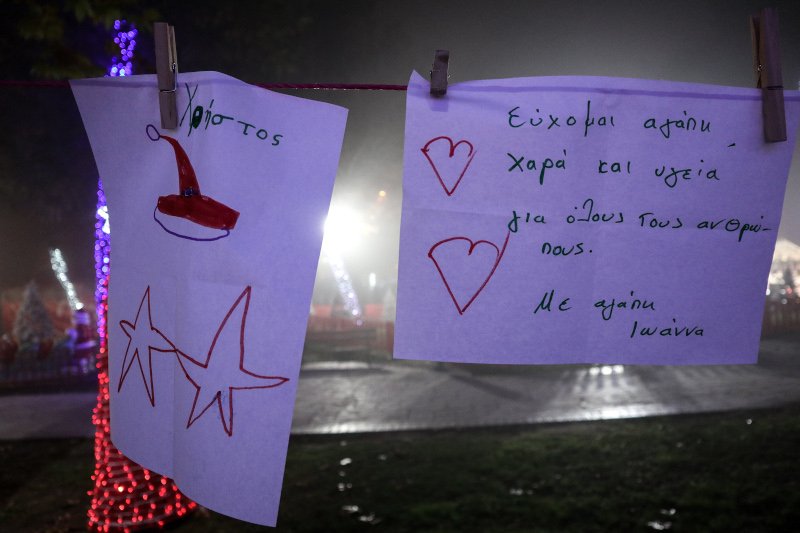 Χρήστος
Εύχομαι αγάπη
χαρά και υγεία
για όλους τους ανθρώ-
πους.
Με αγάπη
Ιωάννα